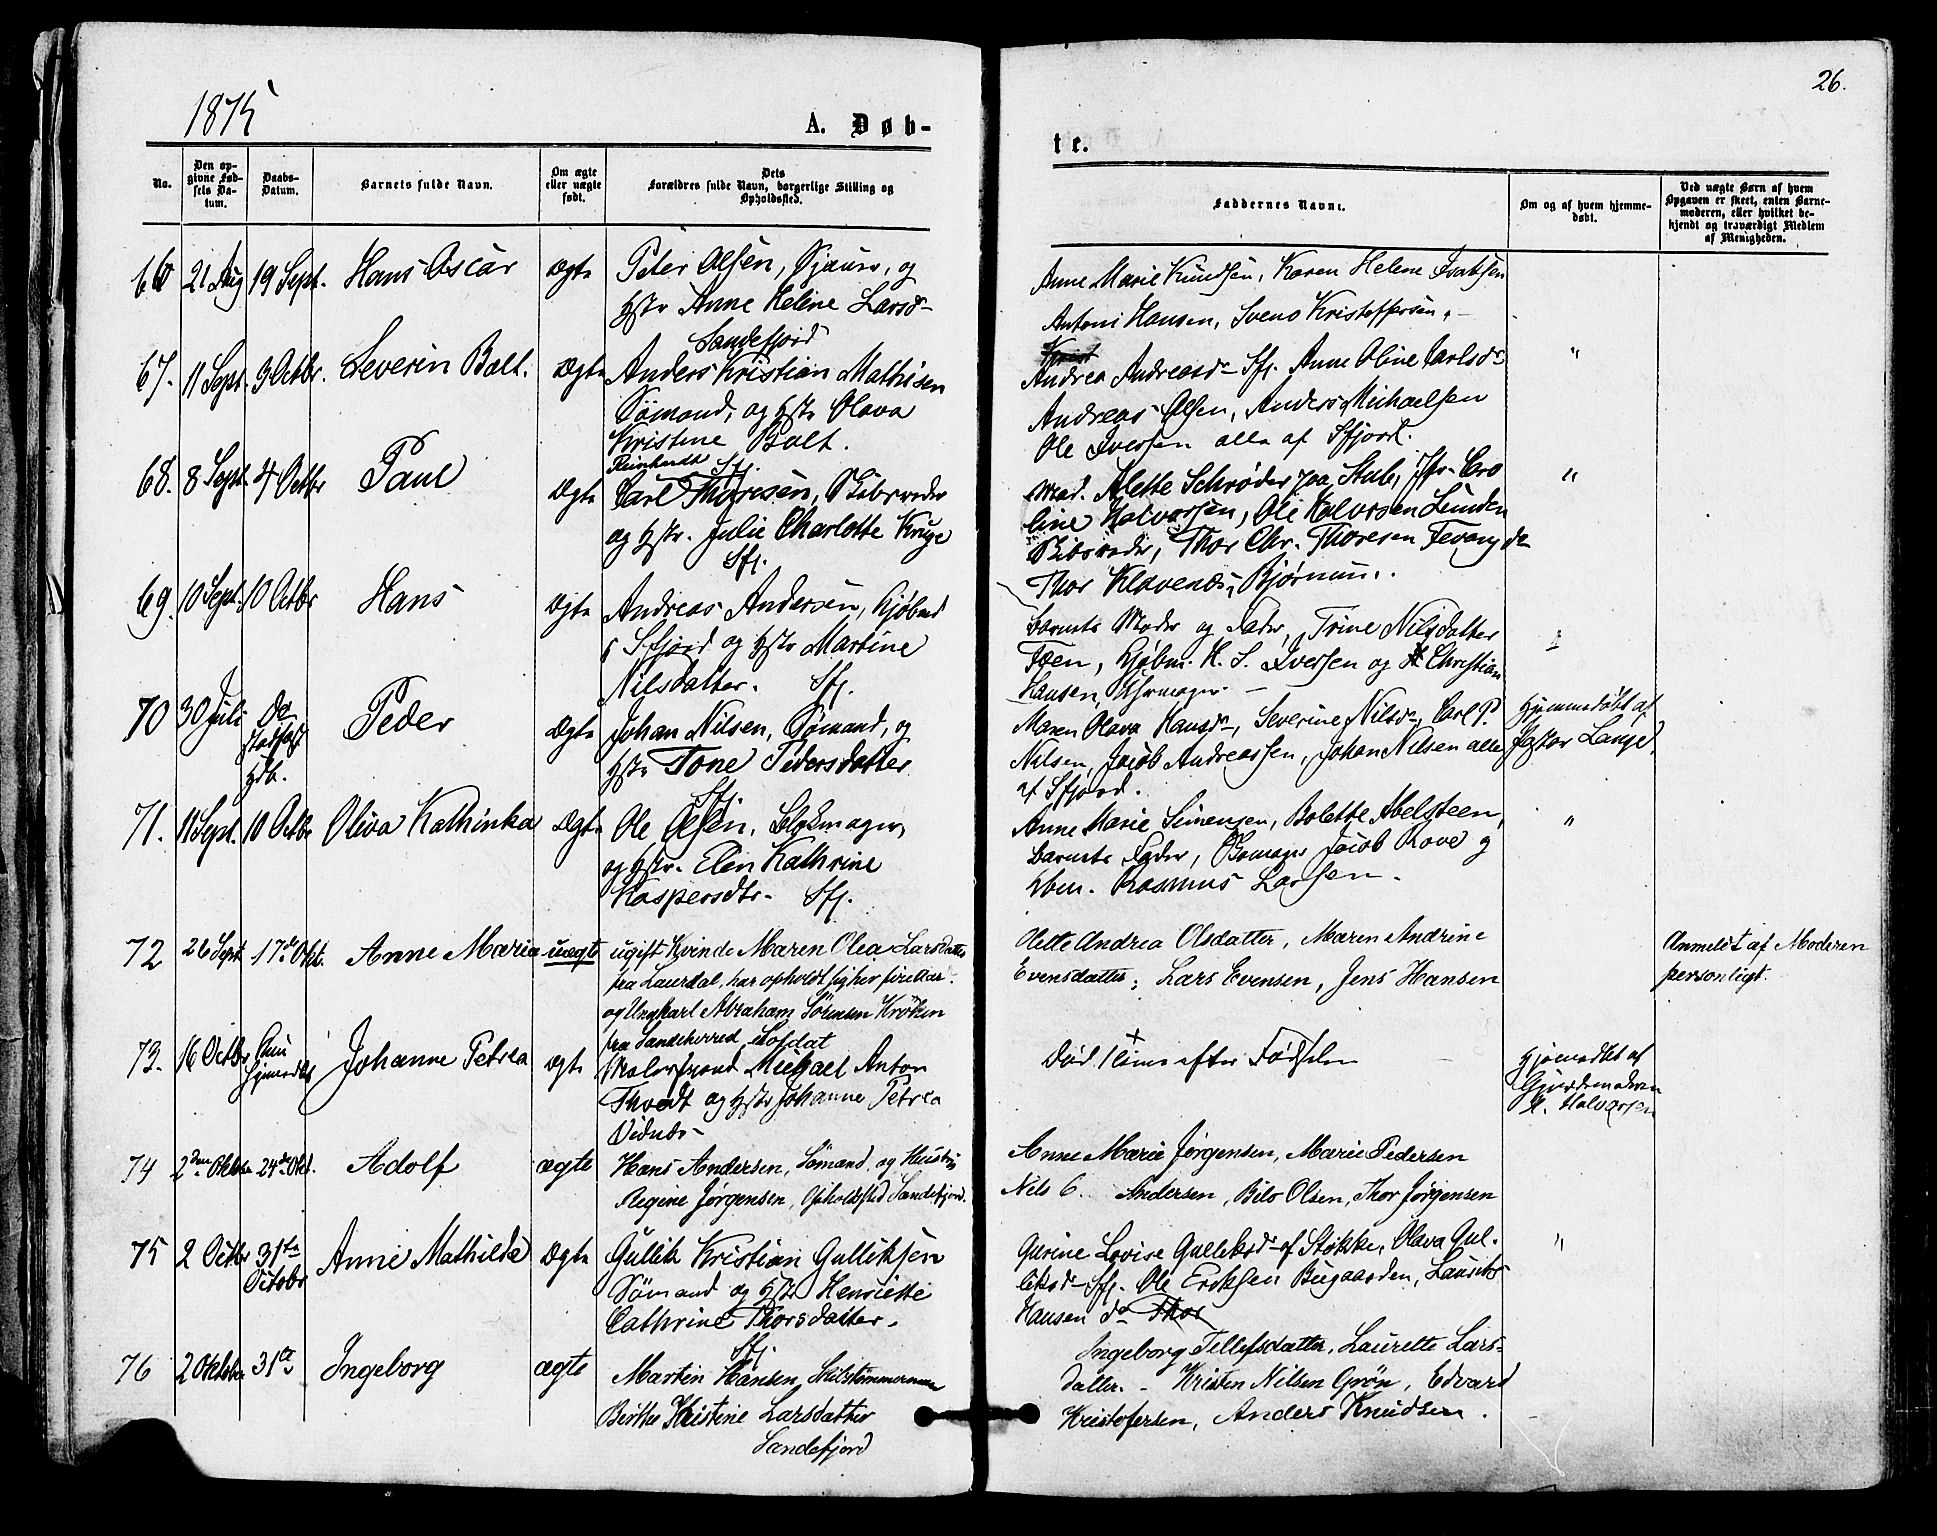 1875
26.
A. Døb-
te.
No.
Den op-
givne Fød-
sels Da-
tum.
Daabs-
Datum.
Barnets fulde Navn.
Om ægte
eller uægte
født.
Dets
Forældres fulde Navn, borgerlige Stilling og
Opholdssted.
Faddernes Navne.
Om og af hvem hjemme-
døbt.
Ved uægte Børn af hvem
Opgaven er skeet, enten Barne-
moderen, eller hvilket be-
kjendt og troværdigt Medlem
af Menigheden.
66 21 Aug 19 Sept. Hans Oscar Ægte Peter Olsen, og
Hstr Anne Heline Larsd-
Sandefjord
Anne Marie Knudsen, Karen Helene
Antoni Hansen, Svend Kristoffersen
67. 11 Sept. 3 Octbr. Severin Bolt. Ægte Anders Kristian Mathisen
Sømand, og Hstr Olava
Kristine Bolt.
Sfj.
Andrea Andreasdr Sfj. Anne Oline Carlsdr
Andreas Olsen, Anders Michaelsen
Ole Iversen alle af Sfjord.
"
68. 8 Sept. 4 Octbr Paul Ægte Carl Thoresen, Skibsreder
og Hstr. Julie Charlotte Kruge
Sfj.
Mad. Alette Schrøder paa Stub, Jfr. Caro
line Halvorsen, Ole Halvorsen Lunden
Skibsreder, Thor Chr. Thoresen Fevang do
Thor Klavenes, Bjørnum.
"
69. 10 Sept. 10 Octbr Hans Ægte Andreas Andersen, Kjøbmd
i Sfjord og Hstr Martine
Nilsdatter. Sfj.
Barnets Moder og Fader, Trine Nilsdatter
Foen, Kjøbm. H. S. Iversen og Christian
Hansen, Uhrmager.
"
70 30 Juli Peder Ægte Johan Nilsen, Sømand, og
Hstr Tone Pedersdatter
Sfj.
Maren Olava Hansdr, Severine Nilsdr, Carl P.
Nilsen, Jacob Andreassen, Johan Nilsen alle
af Sfjord.
Hjemmedøbt af
Pastor Lange.
71. 11 Sept. 10 Octbr Oliva Kathinka Ægte Ole Olsen, Blokmager,
og Hstr. Elen Kathrine
Kaspersdtr. Sfj.
Anne Marie Simensen, Bolette Abelsteen,
Barnets Fader, Jacob Rove og
Rasmus Larsen.
"
72 26 Sept 17de Okt. Anne Maria uægte ugift Kvinde Maren Olea Larsdatter
fra Laurdal, har opholdt sig her
og Ungkarl Abraham Sørensen Krøken
fra Sandeherred, Soldat
Olette Andrea Olsdatter, Maren Andrine
Evensdatter, Lars Evensen, Jens Hansen
Anmeldt af Moderen
personligt.
73. 16 Octbr Johanne Petrea ægte Michael Anton
Thvedt og Hstr Johanne Petrea
Død 1 Time efter Fødselen
Hjemmedøbt af
Gjordemoderen
H. Halvorsen
74 2den Oktober 24de Okt. Adolf ægte Hans Andersen, Sømand, og Hustru
Regine Jørgensen, Opholdssted Sandefjord.
Anne Marie Jørgensen, Marie Pedersen
Nils C. Andersen, Olsen, Thor Jørgensen
75 2 Octbr 31te
Octobr Anne Mathilde Ægte Gullik Kristian Gulliksen
Sømand og Hstr Henriette
Cathrine Thorsdatter.
Sfj.
Gurine Lovise Gulliksdr af Stokke, Olava Gul-
liksdr Sfj. Ole Eriksen Bugaarden, Laurits
Hansen do Thor
"
76 2 Oktober 31te Ingeborg ægte Martin Hansen, Skibstømmermand
Berthe Kristine Larsdatter
Sandefjord
Ingeborg Tellefsdatter, Laurette Lars-
datter. - Kristen Nilsen Grøn, Edvard
Kristofersen, Anders Knudsen.